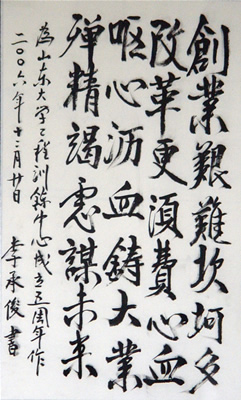 創業艱難坎坷多
改革更須費心血
嘔心沥血鑄大業
殫精竭慮謀未来
為山东大学工程训練中心成立五周年作
二〇〇六年十二月廿日 李承俊書